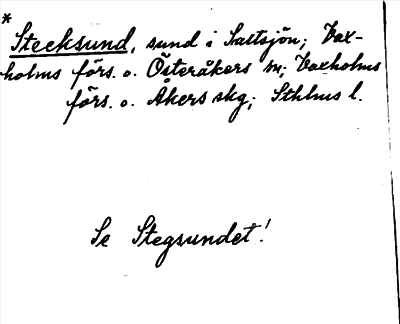 *
Stecksund, sund i Saltsjön; Vax-
holms förs. o. Österåkers sn; Vaxholms
förs. o. Åkers skg; Sthlms l.
Se Stegsundet!